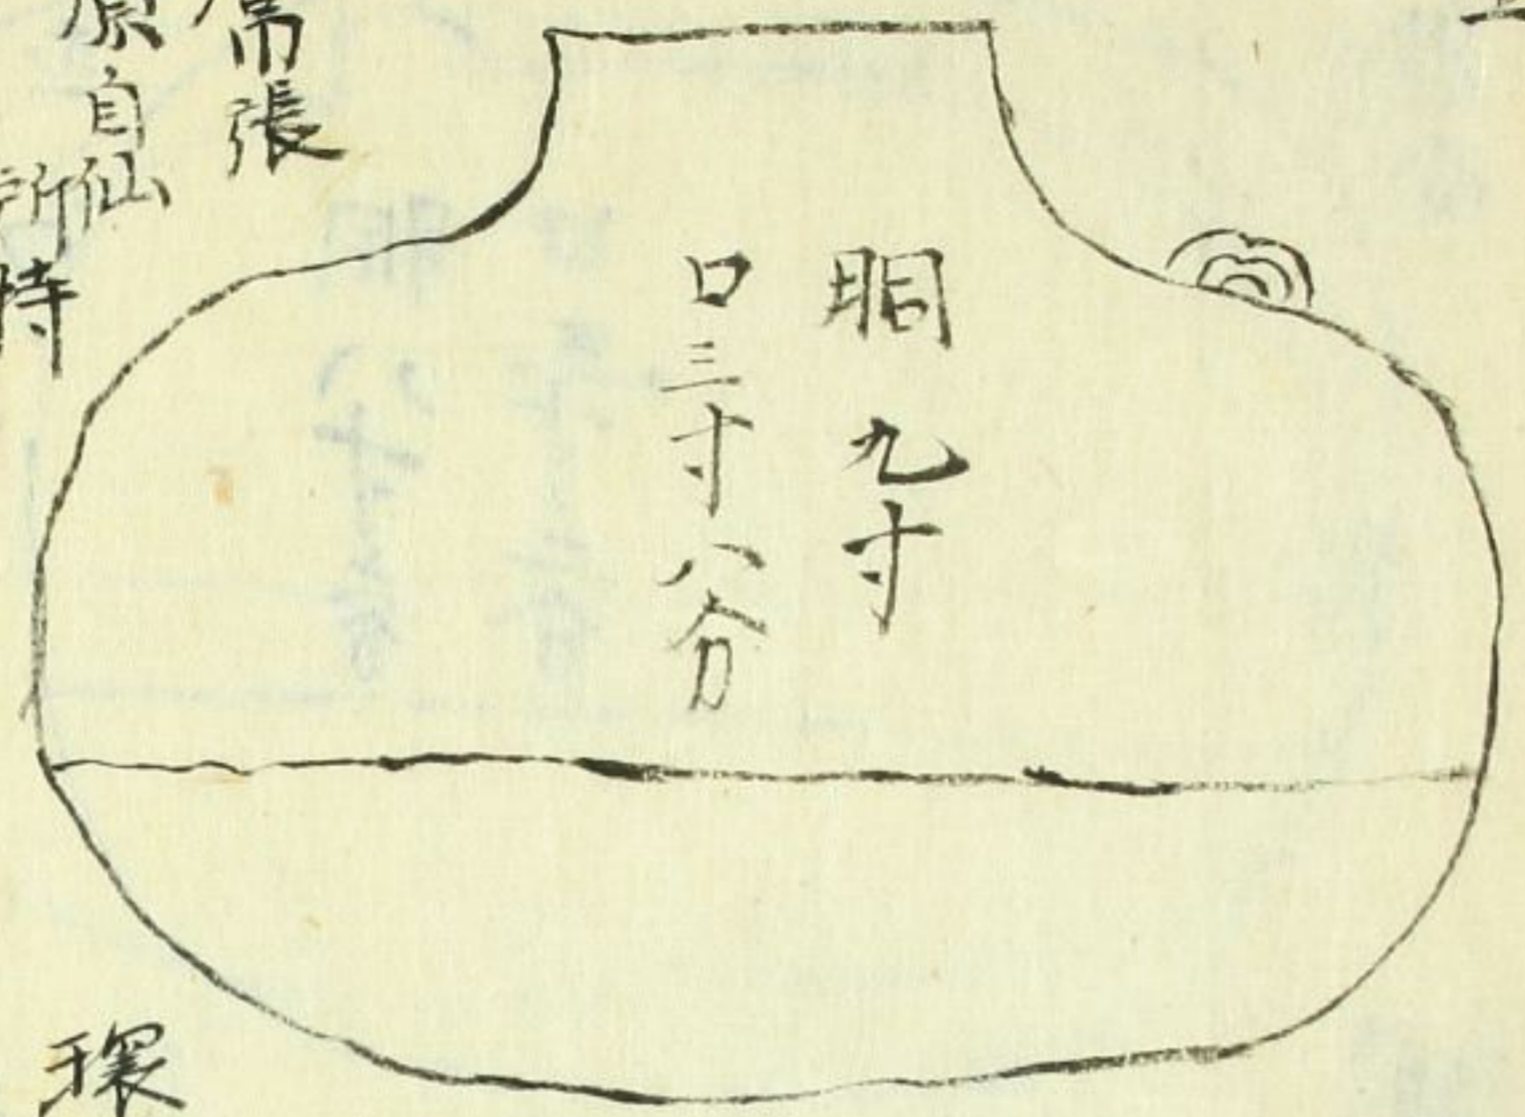 胴 九寸
口三寸八分
張
原自仙
所持
環